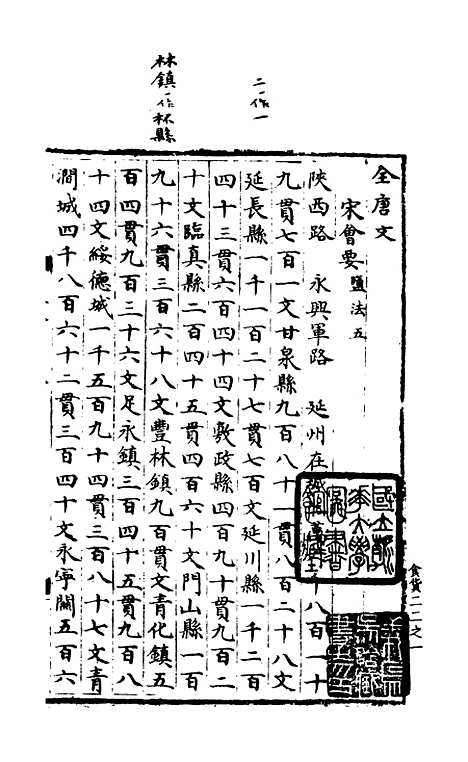 全唐文
宋會要 鹽法五
陝西路 永興軍路 延州在城 八百一十
九貫七百一文甘泉縣九百八十一貫八百二十八文
延長縣一千一百二十七貫七百文延川縣一千二百
四十三貫六百四十四文敷政縣四百九十貫九百二
十文臨真縣二百四十五貫四百六十文門山縣一百
九十六貫三百六十八文豐林鎮九百貫文青化鎮五
百四貫九百三十六文足永鎮三百四十五貫九百八
十四文綏德城一千五百九十四貫三百八十七文青
澗城四千八百六十二貫三百四十文永寧關五百六
二一作一
林鎮一作林縣
食貨二二之一